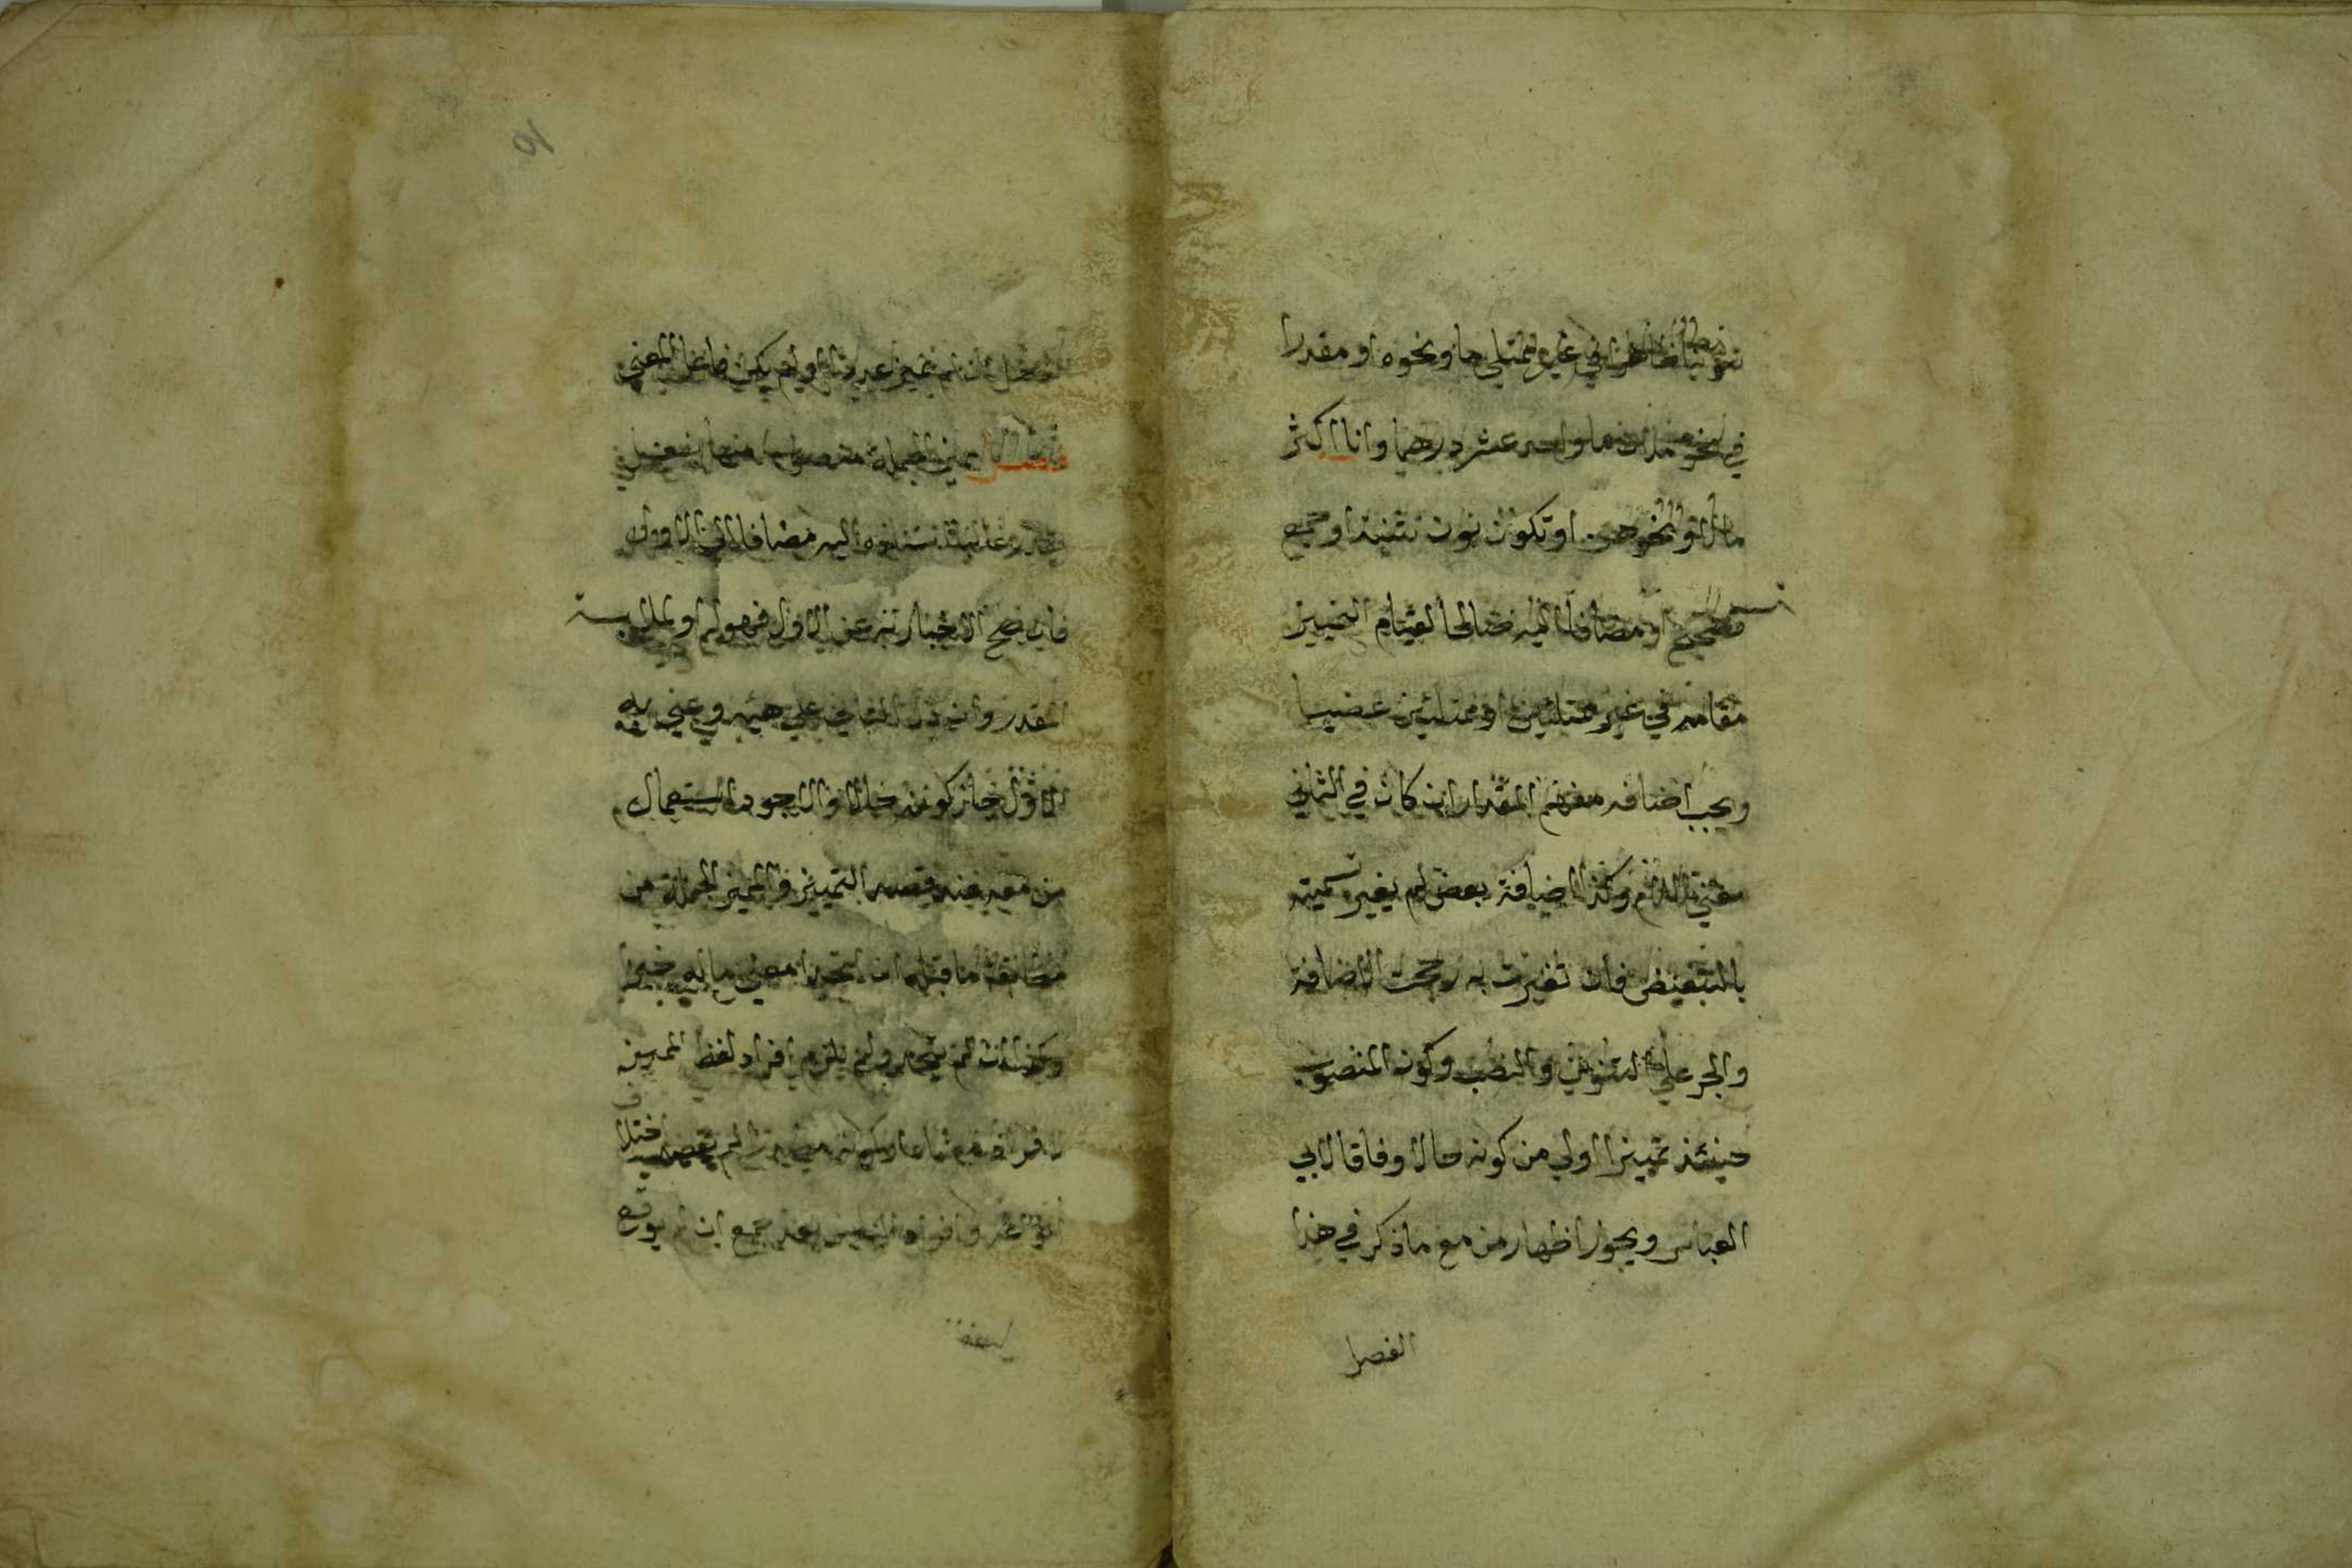 تنوينا ظاهرا في غير ممتلي ما ونحوه او مقدرا
في نحو ملان ما واحد عشر درهما وانا اكثر
مالا ونحو او تكون نون تثنية او جمع
صحيح او مضافا اليه صالحا لقيام التمييز
مقامه في غير ممتلئين او ممتلئين غضبا
ويجب اضافة مفهم المقدار ان كان في الثاني
معنى اللام وكذا اضافة بعض لم يغير تسميته
بالتبعيض فان تغيرت به رجحت الاضافة
والجر على التنوين والنصب وكون المنصوب
حينئذ تمييزا اولي من كونه حالا وفاقا لابي
العباس ويجوز اظهار من مع ما ذكر في هذا
الفصل
٩١
الفصل ان لم يميز عددا او لم يكن فاعل المعنى
فصل مميز الجملة منصوب منها بفعل
يقدر غالبا اسناده اليه مضافا الى الاول
فان صح الاخبار به عن الاول فهو له او لملابسه
المقدر وان دل الثاني على هيئة وعني به
الاول جاز كونه حالا والاجود استعمال
من معه عند قصد التمييز ولمميز الجملة من
مطابقة ما قبله ان اتحدا معنى ما له خبرا
وكذا ان لم يتحدا ولم يلزم افراد لفظ المميز
لافراد معناه او كونه مصدرا لم يقصد اختلاف
انواعه وافراد المباين بعد جمع ان لم يوقع